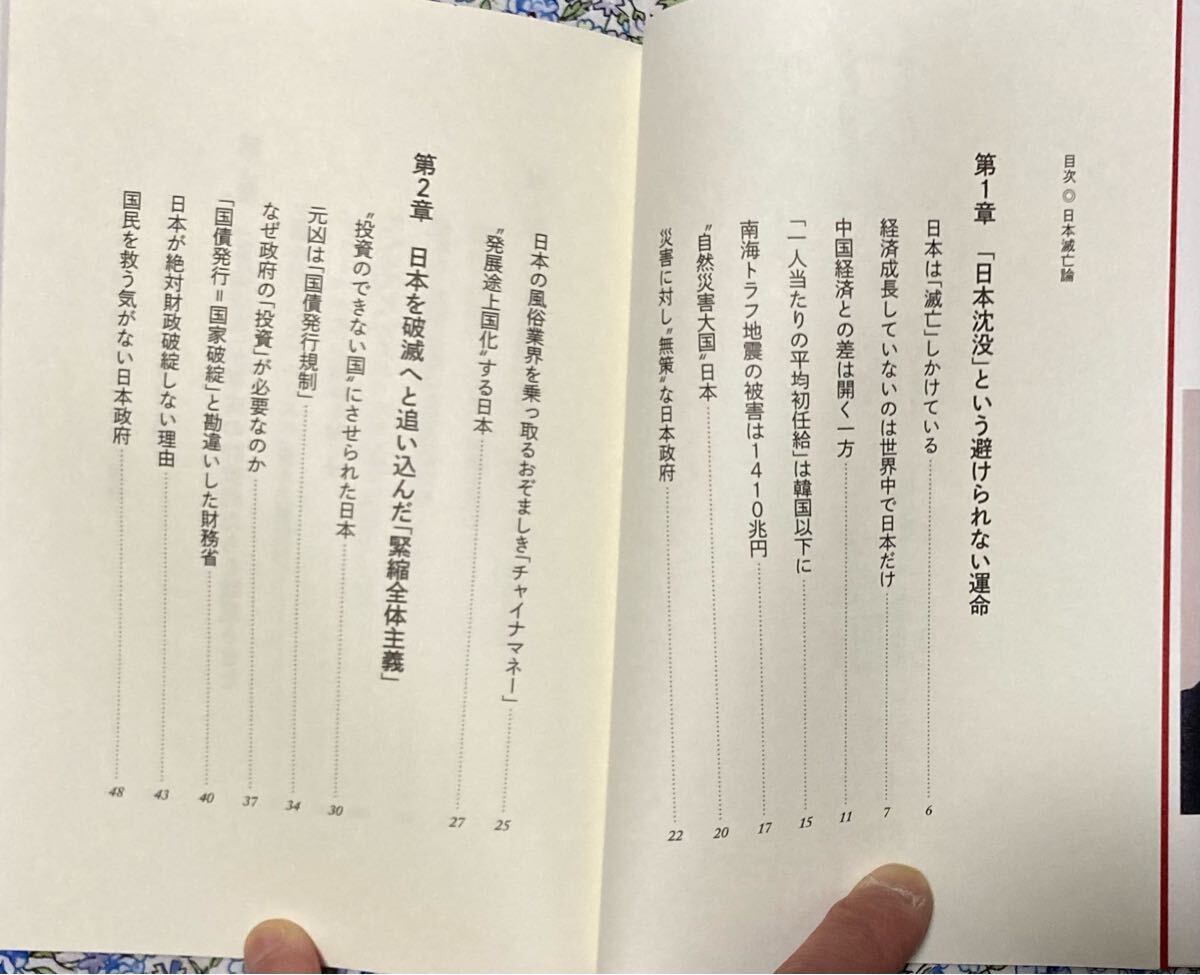 目次◎日本滅亡論
第1章 「日本沈没」という避けられない運命
日本は「滅亡」しかけている 6
経済成長していないのは世界中で日本だけ 7
中国経済との差は開く一方 11
「一人当たりの平均初任給」は韓国以下に 15
南海トラフ地震の被害は1410兆円 17
〝自然災害大国〟日本 20
災害に対し〝無策〟な日本政府 22
日本の風俗業界を乗っ取るおぞましき「チャイナマネー」 25
〝発展途上国化〟する日本 27
第2章 日本を破滅へと追い込んだ「緊縮全体主義」
〝投資のできない国〟にさせられた日本 30
元凶は「国債発行規制」 34
なぜ政府の「投資」が必要なのか 37
「国債発行＝国家破綻」と勘違いした財務省 40
日本が絶対財政破綻しない理由 43
国民を救う気がない日本政府 48